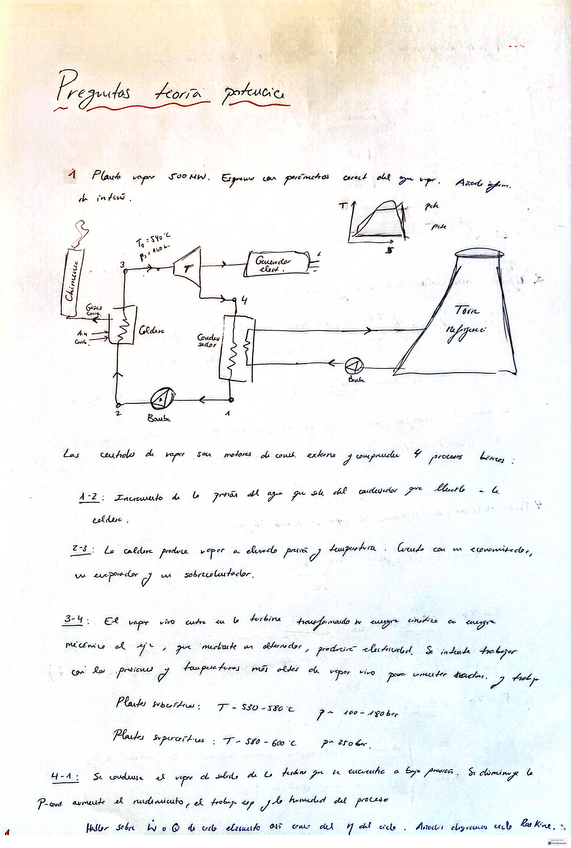 Preguntas teoría potencia
1 Planta vapor 500 MW. Esquema con parámetros caract del agua vapor. Añade inform.
de interés.
T
S
T3 = 540 °C
3
T
Generador
eléct.
4
Chimenea
Gases
comb.
Aire
Comb.
Caldera
Conden
sador
Torre
refrigeraci
Bomba
2
Bomba
1
Las centrales de vapor son motores de comb. externa y comprenden 4 procesos básicos:
1-2: Incremento de la presión del agua que sale del condensador que llevarla a la
caldera.
2-3: La caldera produce vapor a elevada presión y temperatura. Cuenta con un economizador,
un evaporador y un sobrecalentador.
3-4: El vapor vivo entra en la turbina transformando su energía cinética en energía
mecánica al eje, que mediante un alternador, producirá electricidad. Se intenta trabajar
con las presiones y temperaturas más altas de vapor vivo para aumentar y trabajo
Plantas subcríticas: T ~ 530-580 °C p ~ 100-180 bar
Plantas supercríticas: T ~ 580-600 °C p ~ 250 bar.
4-1: Se condensa el vapor de salida de la turbina que se encuentra a baja presión. Si disminuye la
P-cond aumenta el rendimiento, el trabajo esp y la humedad del proceso
Hablar sobre Ẇ o Q de cada elemento así como del η del ciclo. Añadir diagramas ciclo Rankine.